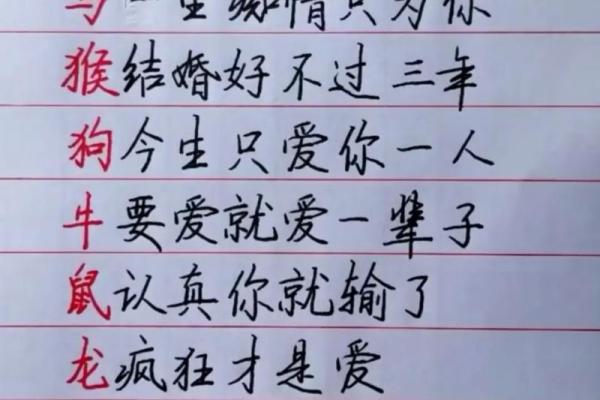 马一生痴情只为你
猴结婚好不过三年
狗今生只爱你一人
牛要爱就爱一辈子
鼠认真你就输了
龙疯狂才是爱